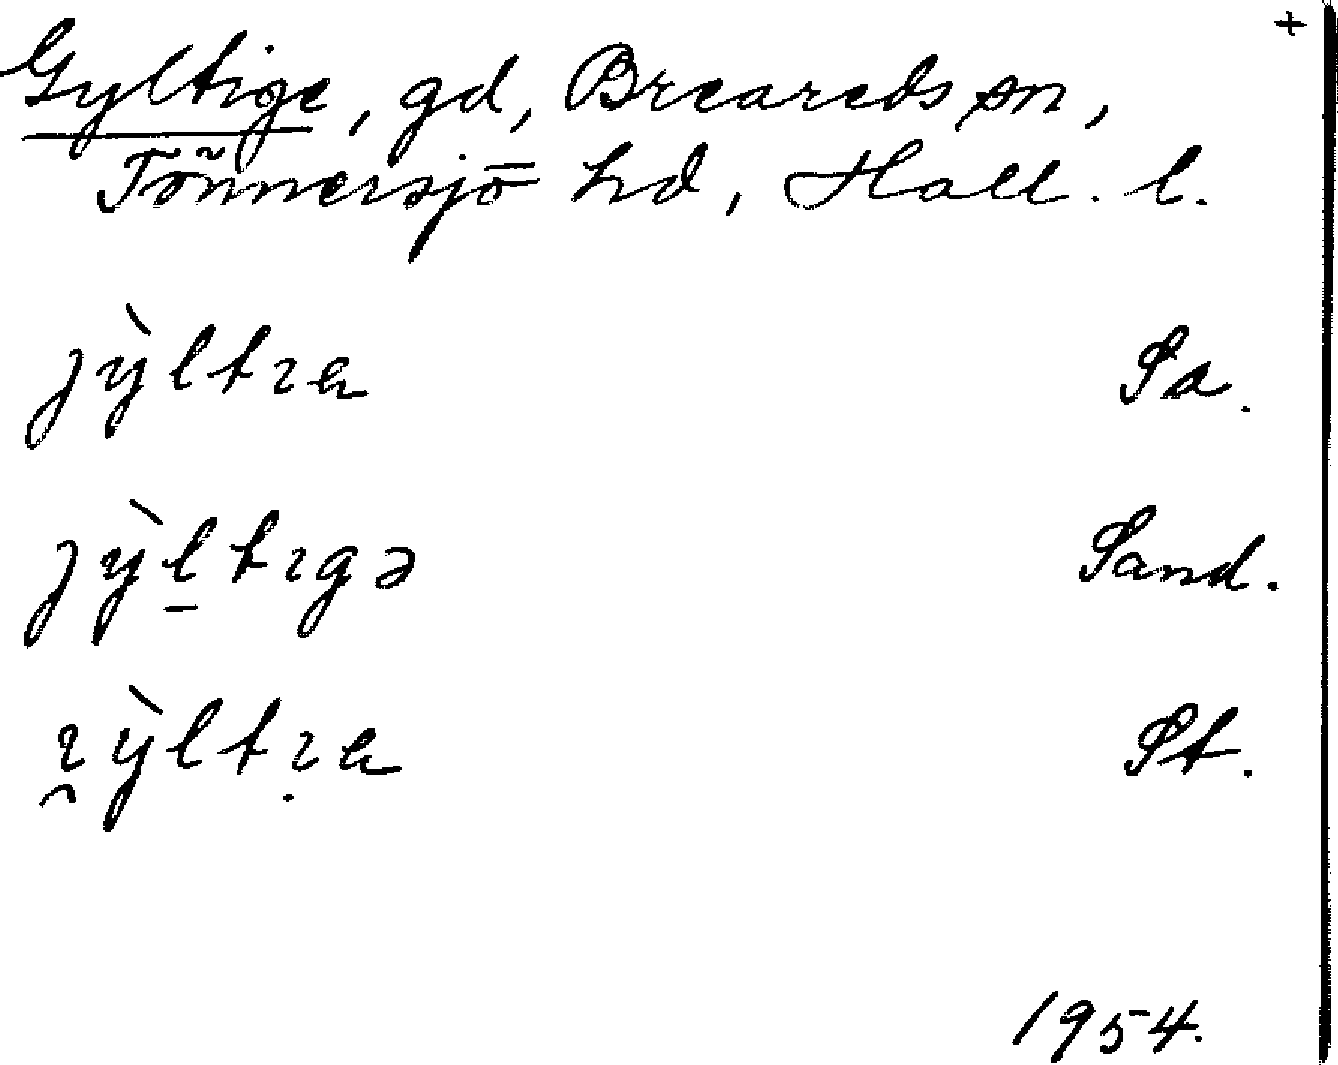 +
Gyltige, gd, Breareds sn,
Tönnersjö hd, Hall. l.
jỳltıa Sa.
jỳl̠tıgə Sand.
ı̯ỳltı̣a St.
1954.